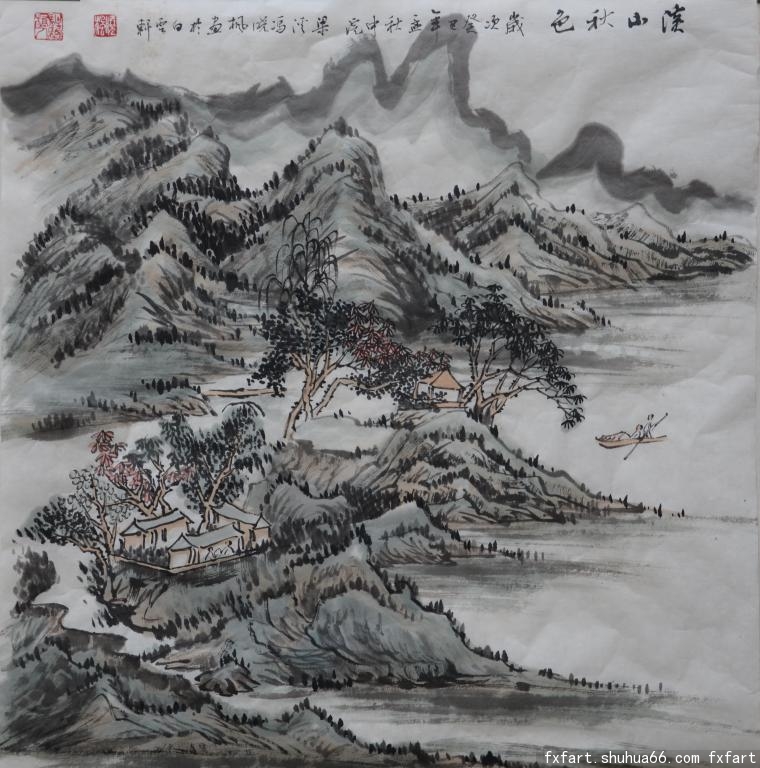 溪山秋色 歲次癸巳年孟秋中浣 梁溪馮曉楓畫於白雲軒
fxfart.shuhua66.com fxfart